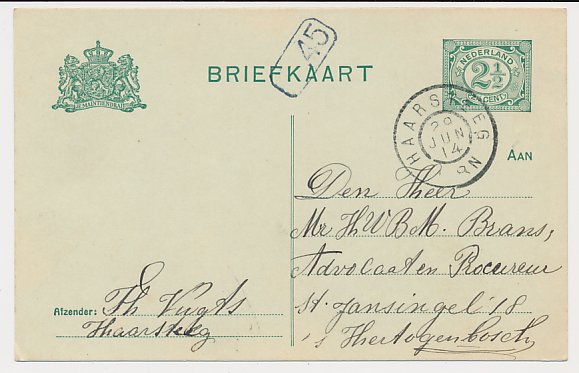 45
BRIEFKAART
JE MAINTIENDRAI
NEDERLAND
2½
CENT
HAARSTEEG
29
JUN
14
AAN
Den Heer
Mr HWBM. Brans,
Advocaat en Procureur
St. Jansingel 18
's Hertogenbosch
Afzender: Th Vugts
Haarsteeg